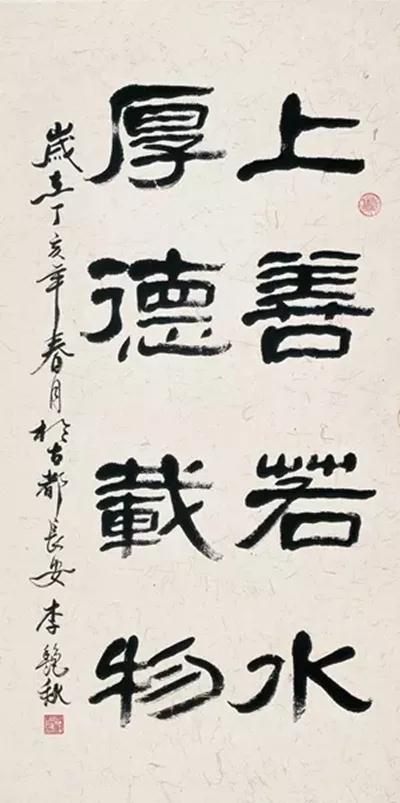 上善若水
厚德載物
歲在丁亥年春月於古都長安 李艷秋